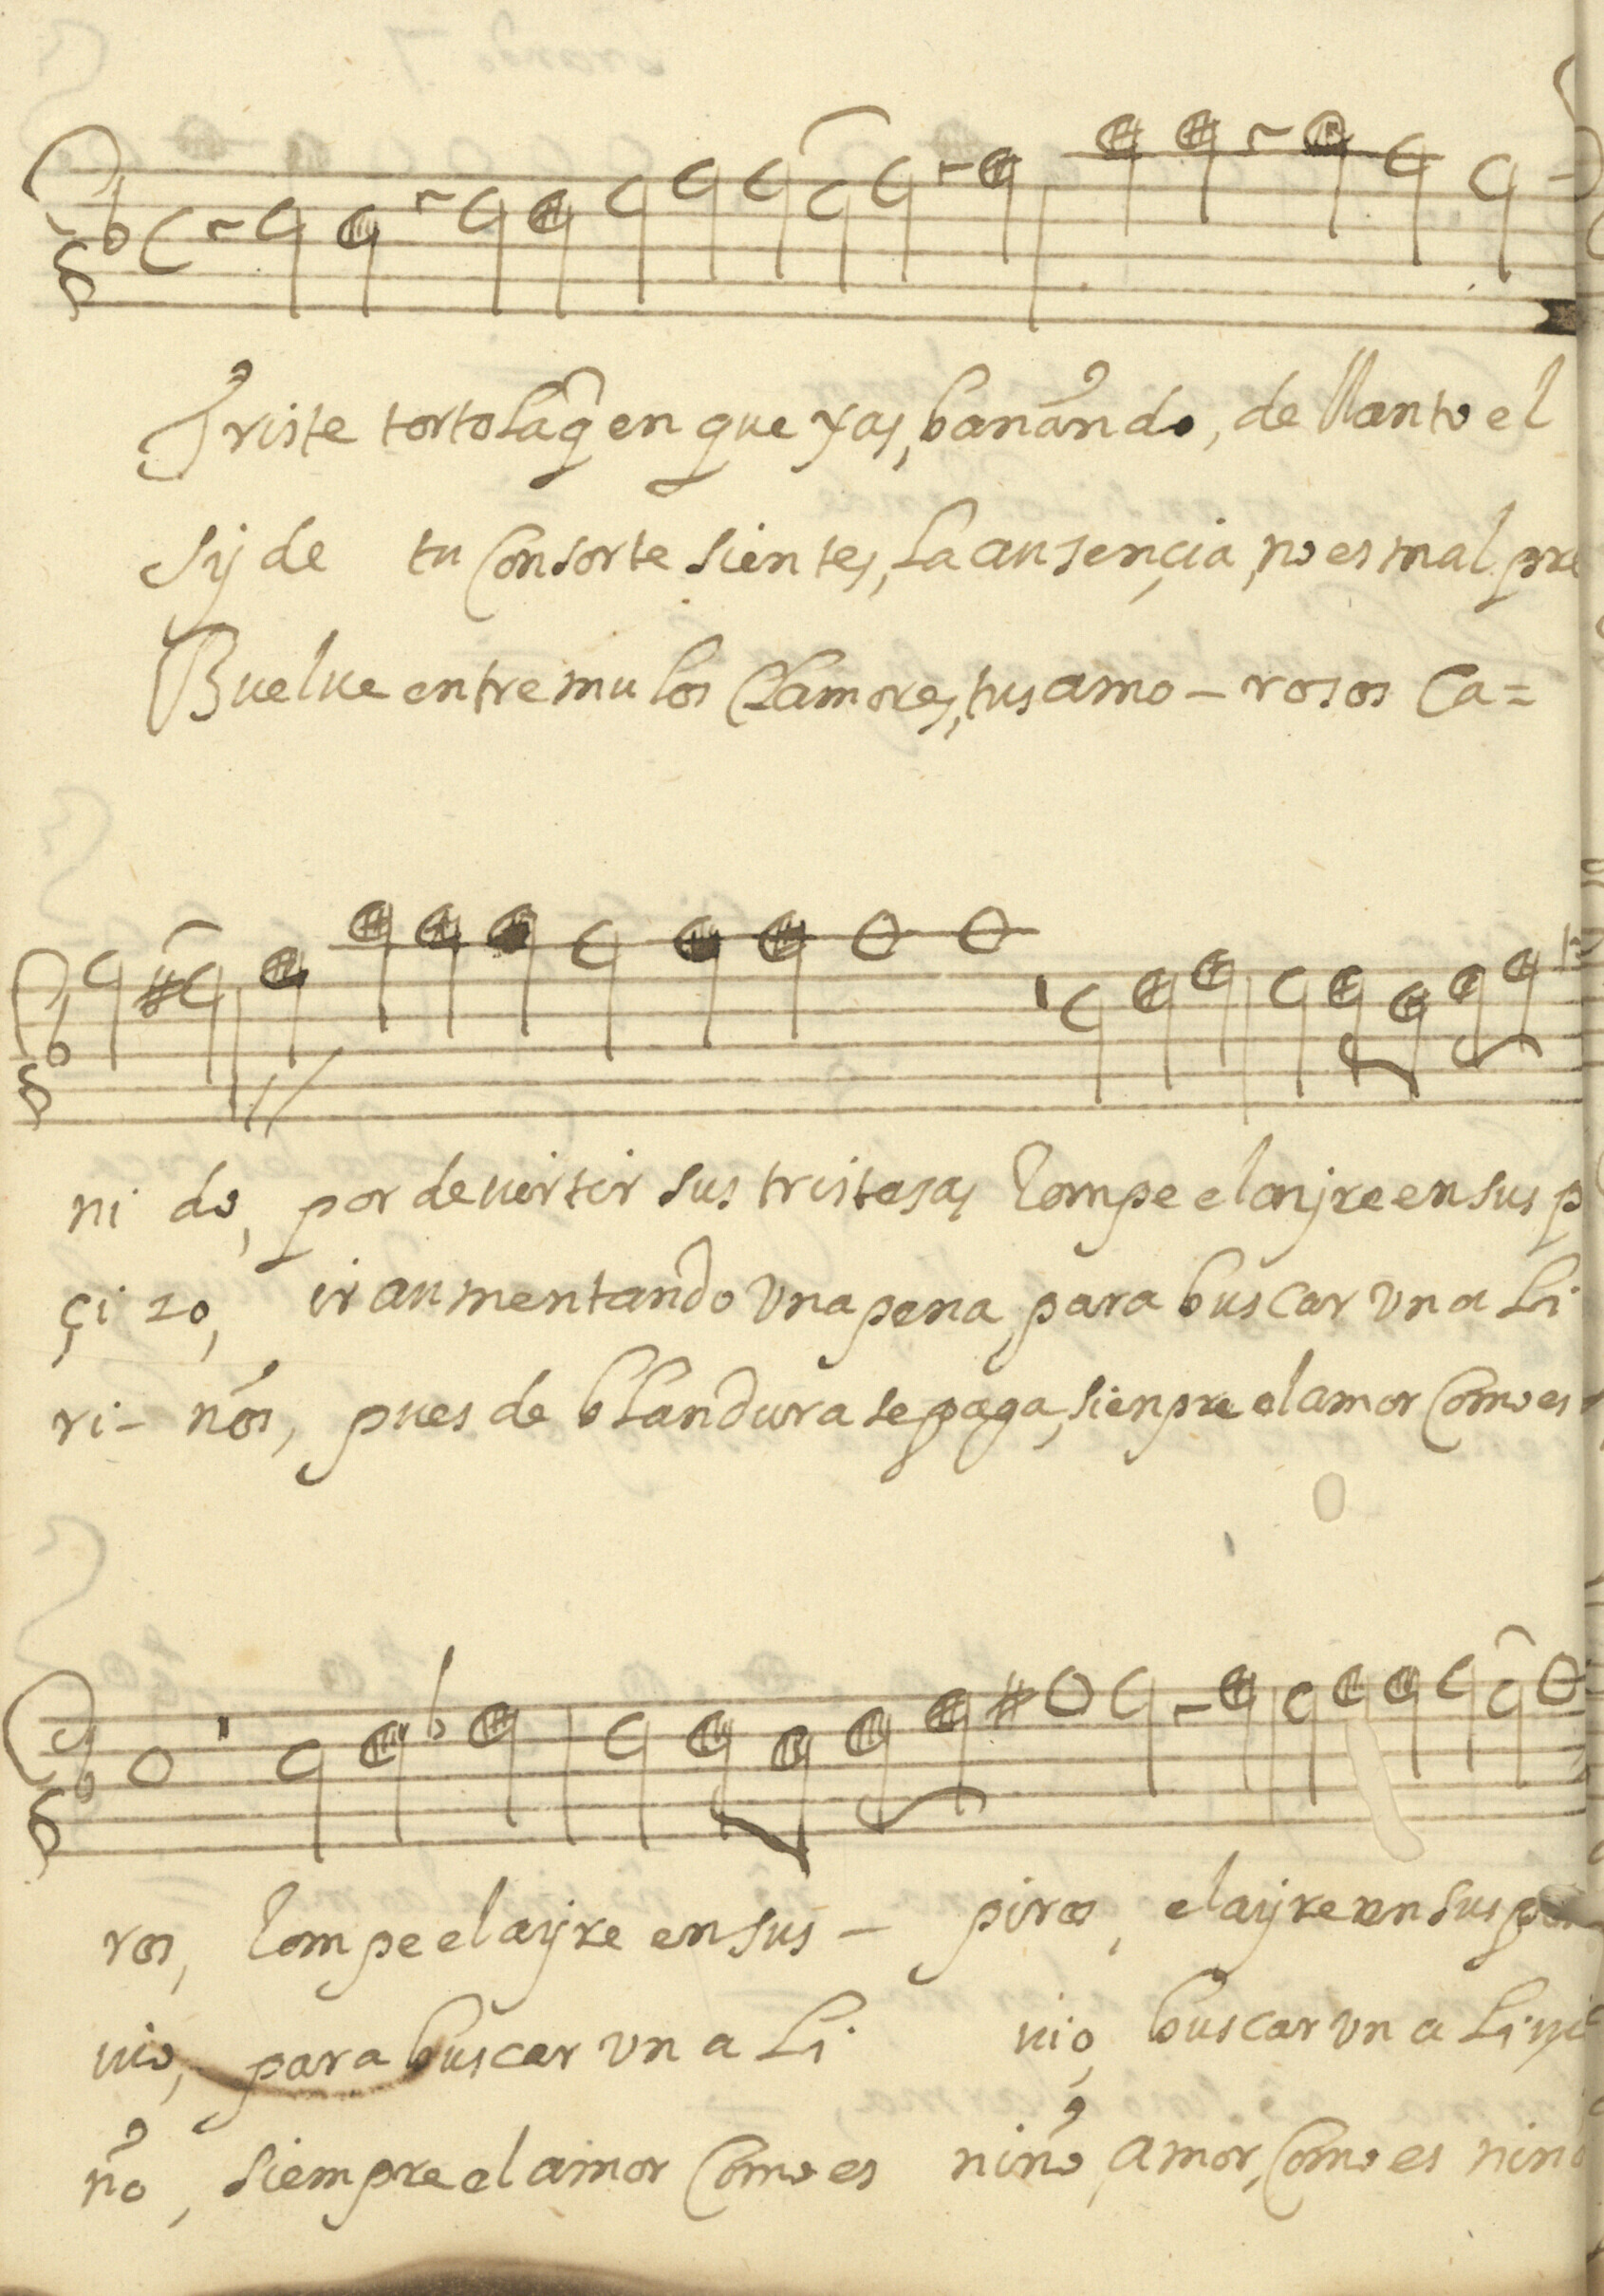 Triste tortola q̃ en quexas, bañando, de llanto el
Sy de tu Consorte sientes, La ausençia, no es mal pre
Buelue entremulos Clamores, tus amo - rosos Ca=
ni do, por deuertir sus tristesas Rompe el ayre en sus p
çi so, ir aumentando Vna pena, para buscar Vn a Li
ri- ños, pues de bLandura se paga, sienpre el amor Como es
ros, Rompe el ayre en sus - piros, el ayre en sus
uio, para buscar Vn a Li uio, buscar Vn a Li
ño, siempre el amor Como es niño, amor, Como es niño